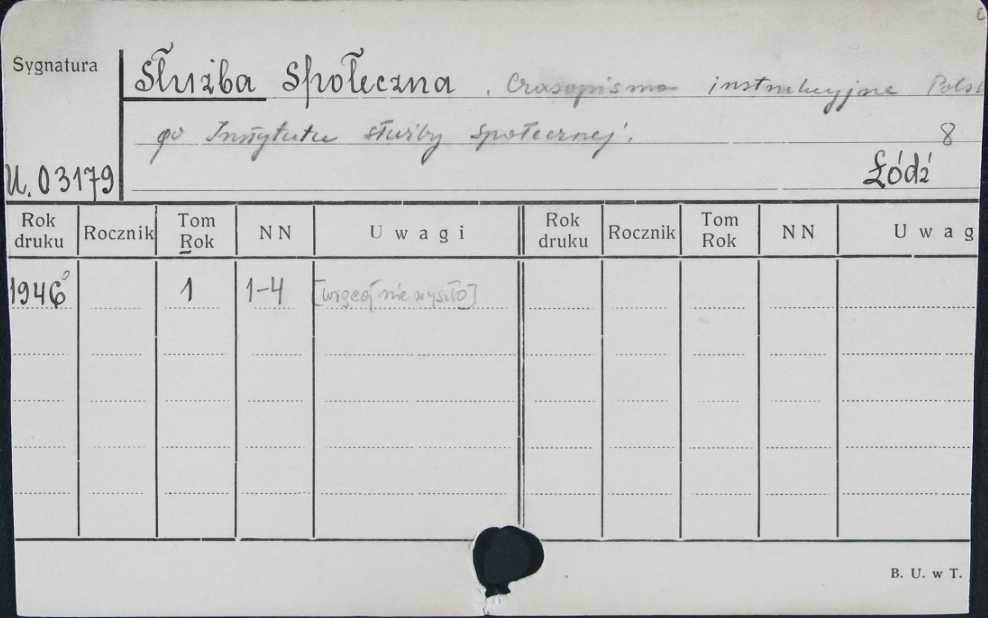 Sygnatura
Służba Społeczna. Czasopismo instrukcyjne Pols
go Instytutu służby społecznej.
8
U. 03179
Łódź
Rok druku Rocznik Tom Rok NN Uwagi Rok druku Rocznik Tom Rok NN Uwag
1946 1 1-4 [więcej nie wyszło]
B. U. w T.